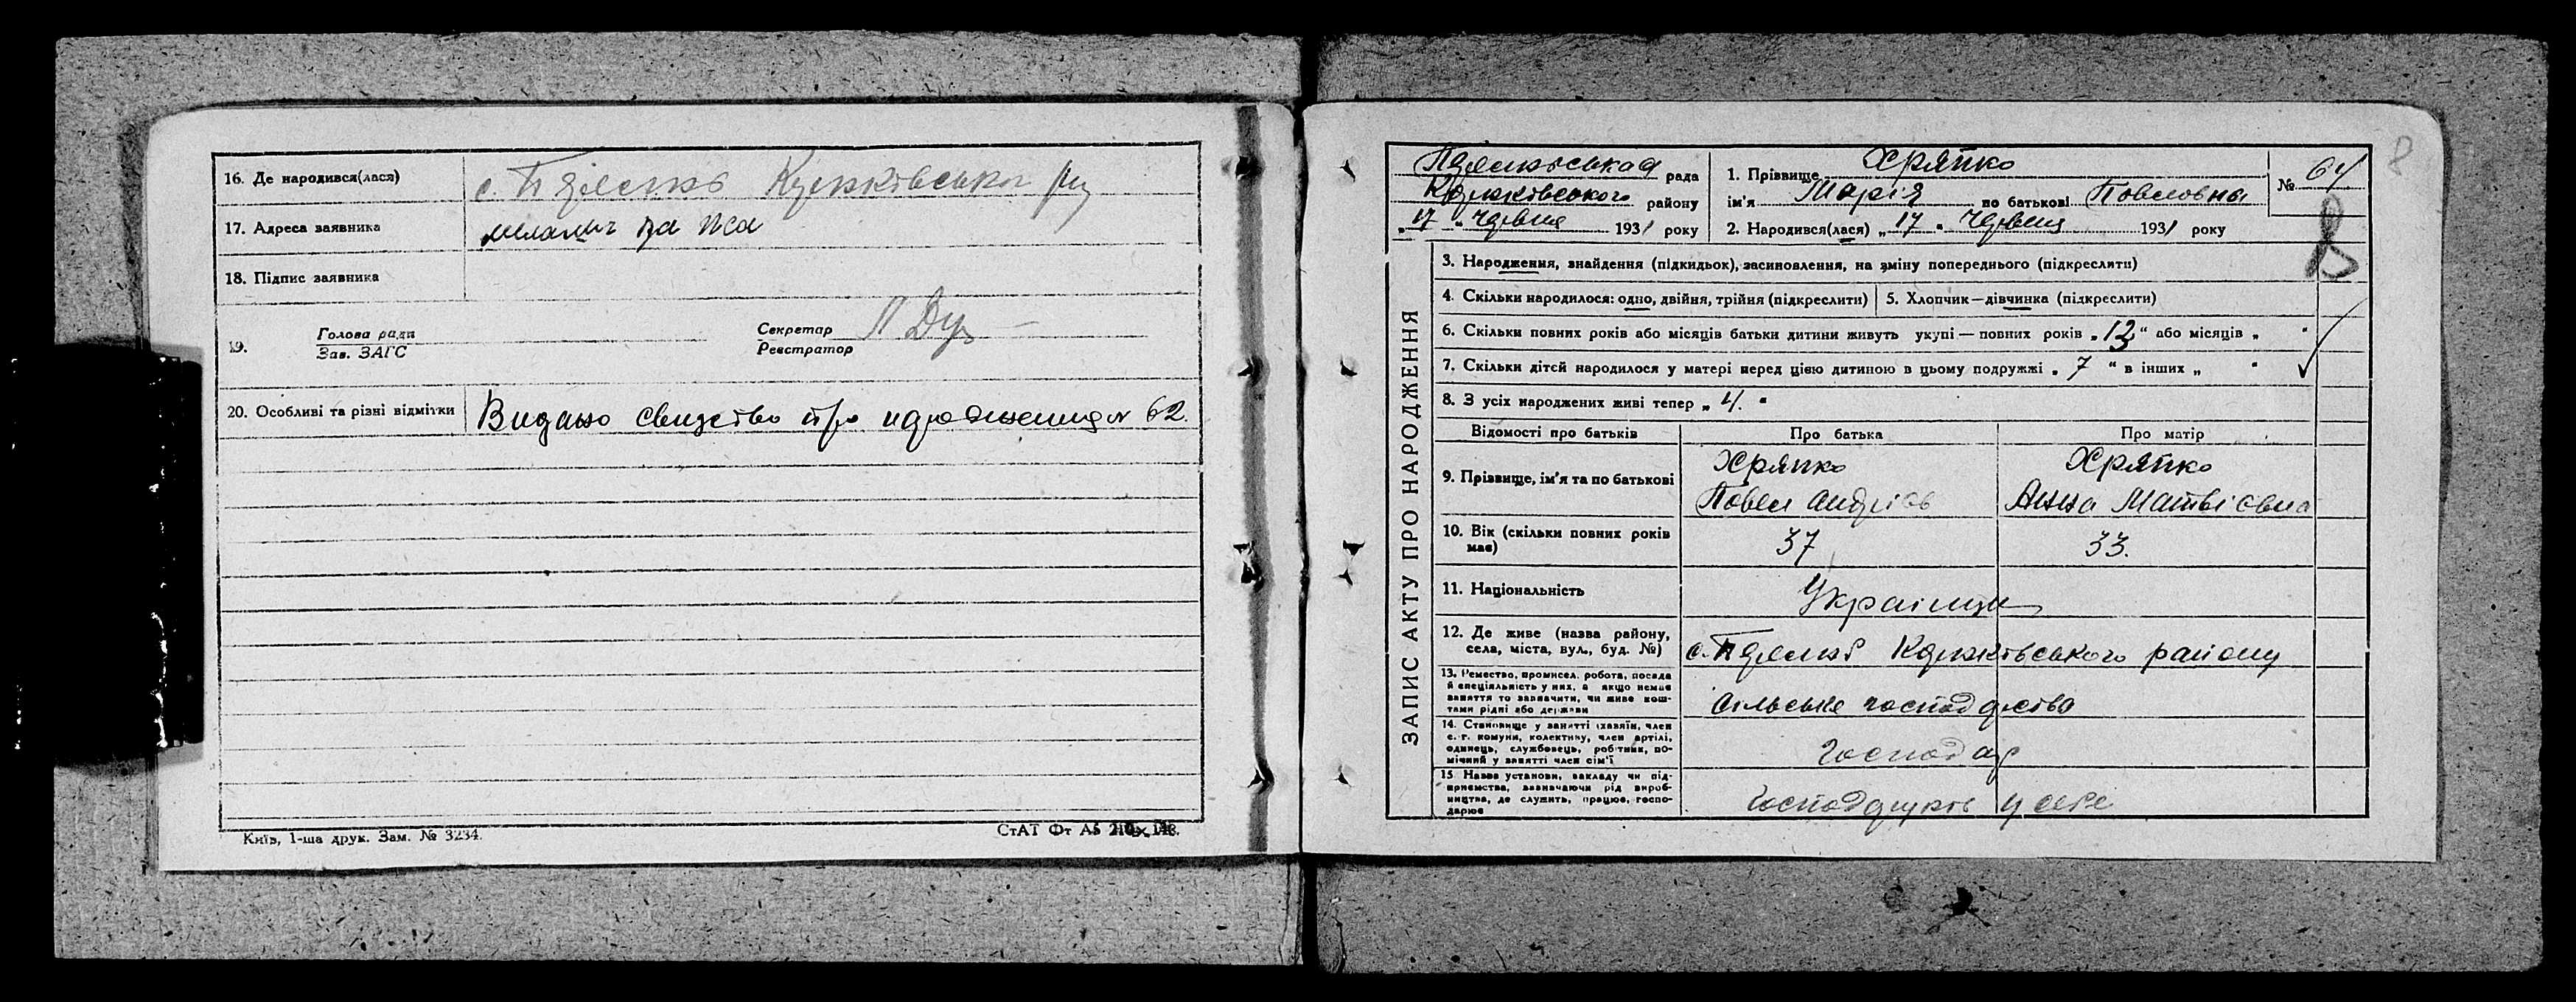 16. Де народився(лася)
17. Адреса заявника
18. Підпис заявника
19. Голова ради
Зав. ЗАГС
Секретар
Реєстратор
20. Особливі та різні відмітки Видано свидство про народження № 62.
Київ, 1-ша друк. Зам. № 3234.
СтАТ Фт А5
8
рада
району
"17" червня 1931 року
1. Прізвище Хряпко
ім'я Марія по батькові Павловна
№ 64
2. Народився(лася) "17" червня 1931 року
ЗАПИС АКТУ ПРО НАРОДЖЕННЯ
3. Народження, знайдення (підкидьок), засиновлення, на зміну попереднього (підкреслити)
4. Скільки народилося: одно, двійня, трійня (підкреслити)
5. Хлопчик—дівчинка (підкреслити)
6. Скільки повних років або місяців батьки дитини живуть укупі — повних років "12" або місяців " "
7. Скільки дітей народилося у матері перед цією дитиною в цьому подружжі "7" в інших " "
8. З усіх народжених живі тепер "4."
Відомості про батьків Про батька Про матір
9. Прізвище, ім'я та по батькові
Хряпко Хряпко
Павел Андріїв Анна Матвіовна
10. Вік (скільки повних років має) 37 33.
11. Національність Українци
12. Де живе (назва району,
села, міста, вул., буд. №)
району
13. Ремество, промисел, робота, посада
й спеціяльність у них, а якщо немає
заняття то зазначити, чи живе кош-
тами рідні або держави
сільське господарство
14. Становище у занятті (хазяїн, член
с.-г. комуни, колективу, член артілі,
одинець, службовець, робітник, по-
мічний у занятті член сім'ї
господар
15. Назва установи, закладу чи під-
приємства, зазначаючи рід вироб-
ництва, де служить, працює, госпо-
дарює
господарують у себе